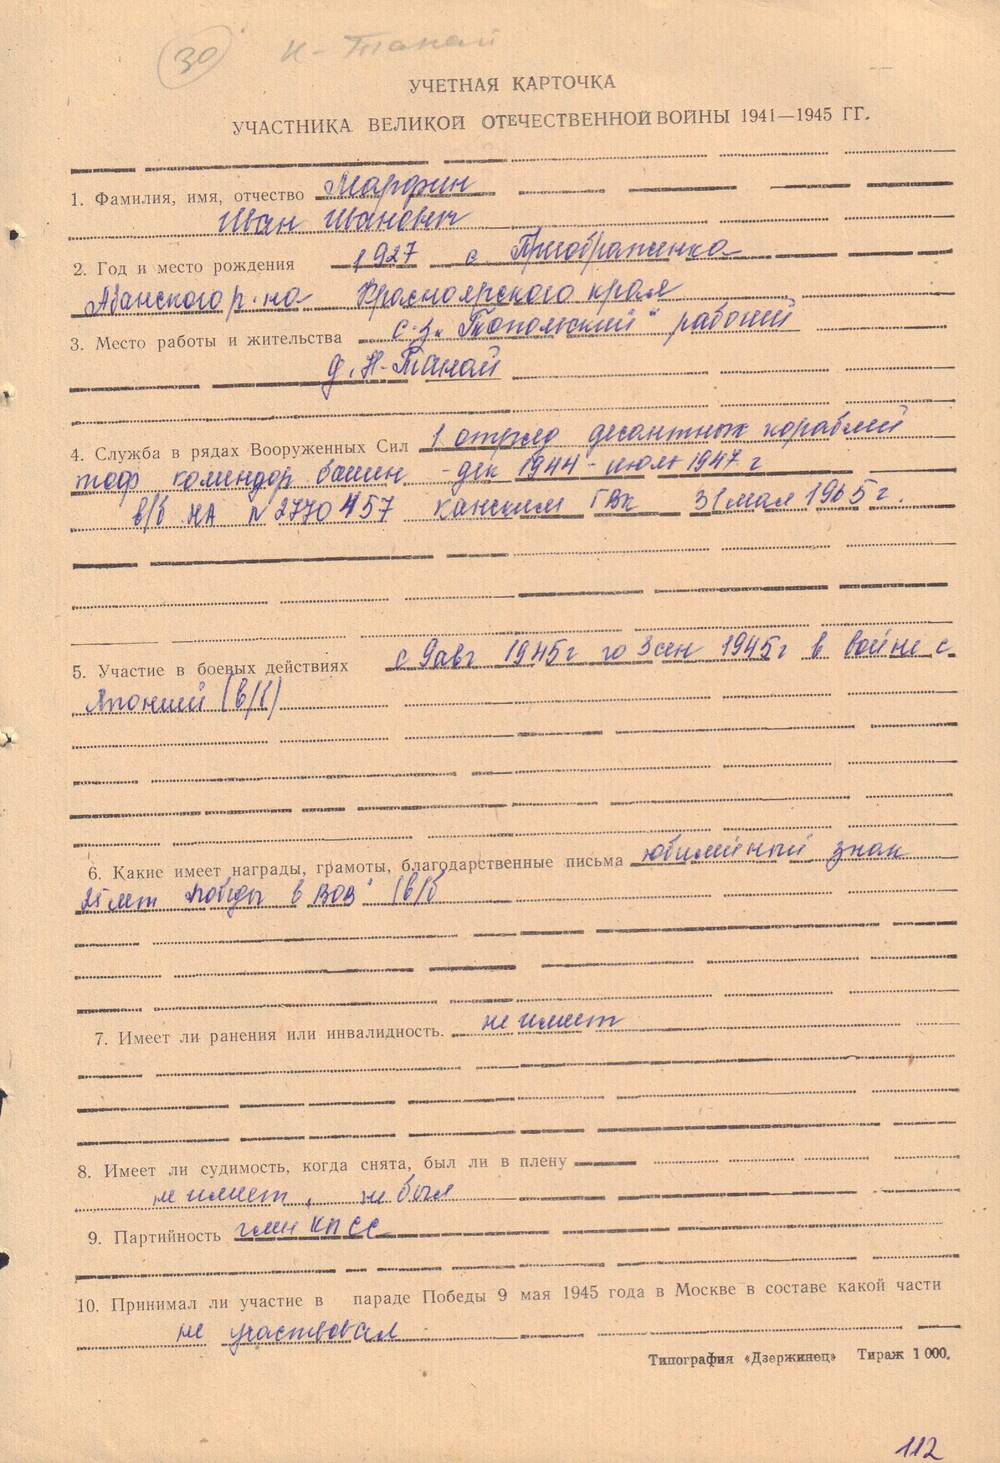 30 Н-Танай
УЧЕТНАЯ КАРТОЧКА
УЧАСТНИКА ВЕЛИКОЙ ОТЕЧЕСТВЕННОЙ ВОЙНЫ 1941—1945 ГГ.
1. Фамилия, имя, отчество Марфин
Иван Иванович
2. Год и место рождения 1927 с Приображенка
Абанского р-на Красноярского края
3. Место работы и жительства с-з „Топольский" рабочий
д. Н-Танай
4. Служба в рядах Вооруженных Сил 1 отряд десантных кораблей
тоф комендор башен - дек 1944 - июль 1947 г
в/б НА N 2770457 Канским ГВК 31 мая 1965 г.
5. Участие в боевых действиях с 9 авг 1945 г по 3 сен 1945 г в войне с
Японией (в/б)
6. Какие имеет награды, грамоты, благодарственные письма юбилейный знак
25 лет Победы в ВОВ" (в/б
7. Имеет ли ранения или инвалидность. не имеет
8. Имеет ли судимость, когда снята, был ли в плену
не имеет, не был
9. Партийность член КПСС
10. Принимал ли участие в параде Победы 9 мая 1945 года в Москве в составе какой части
не участвовал
Типография «Дзержинец» Тираж 1 000.
112